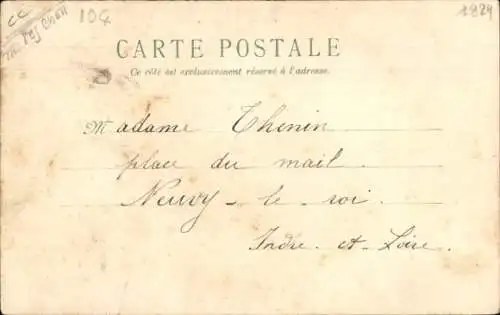 CC
10G
1924
CARTE POSTALE
Ce côté est exclusivement réservé à l'adresse.
Madame Thenin
place du mail.
Neuvy-le-roi.
Indre-et-Loire.